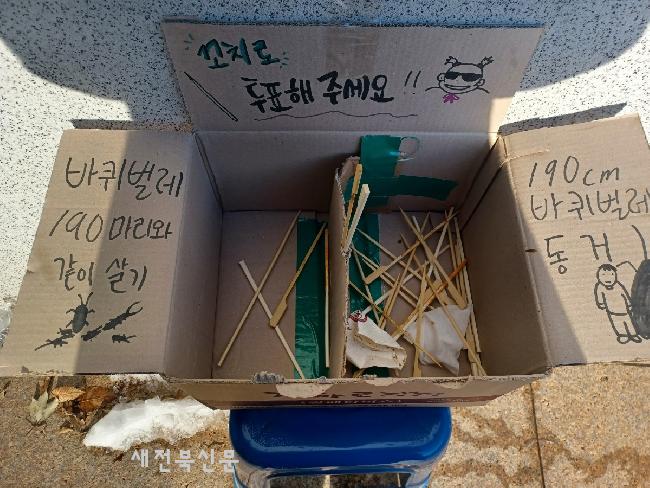 꼬치로
투표해 주세요!!
바퀴벌레
190마리와
같이 살기
190cm
바퀴벌레
동거
새전북신문